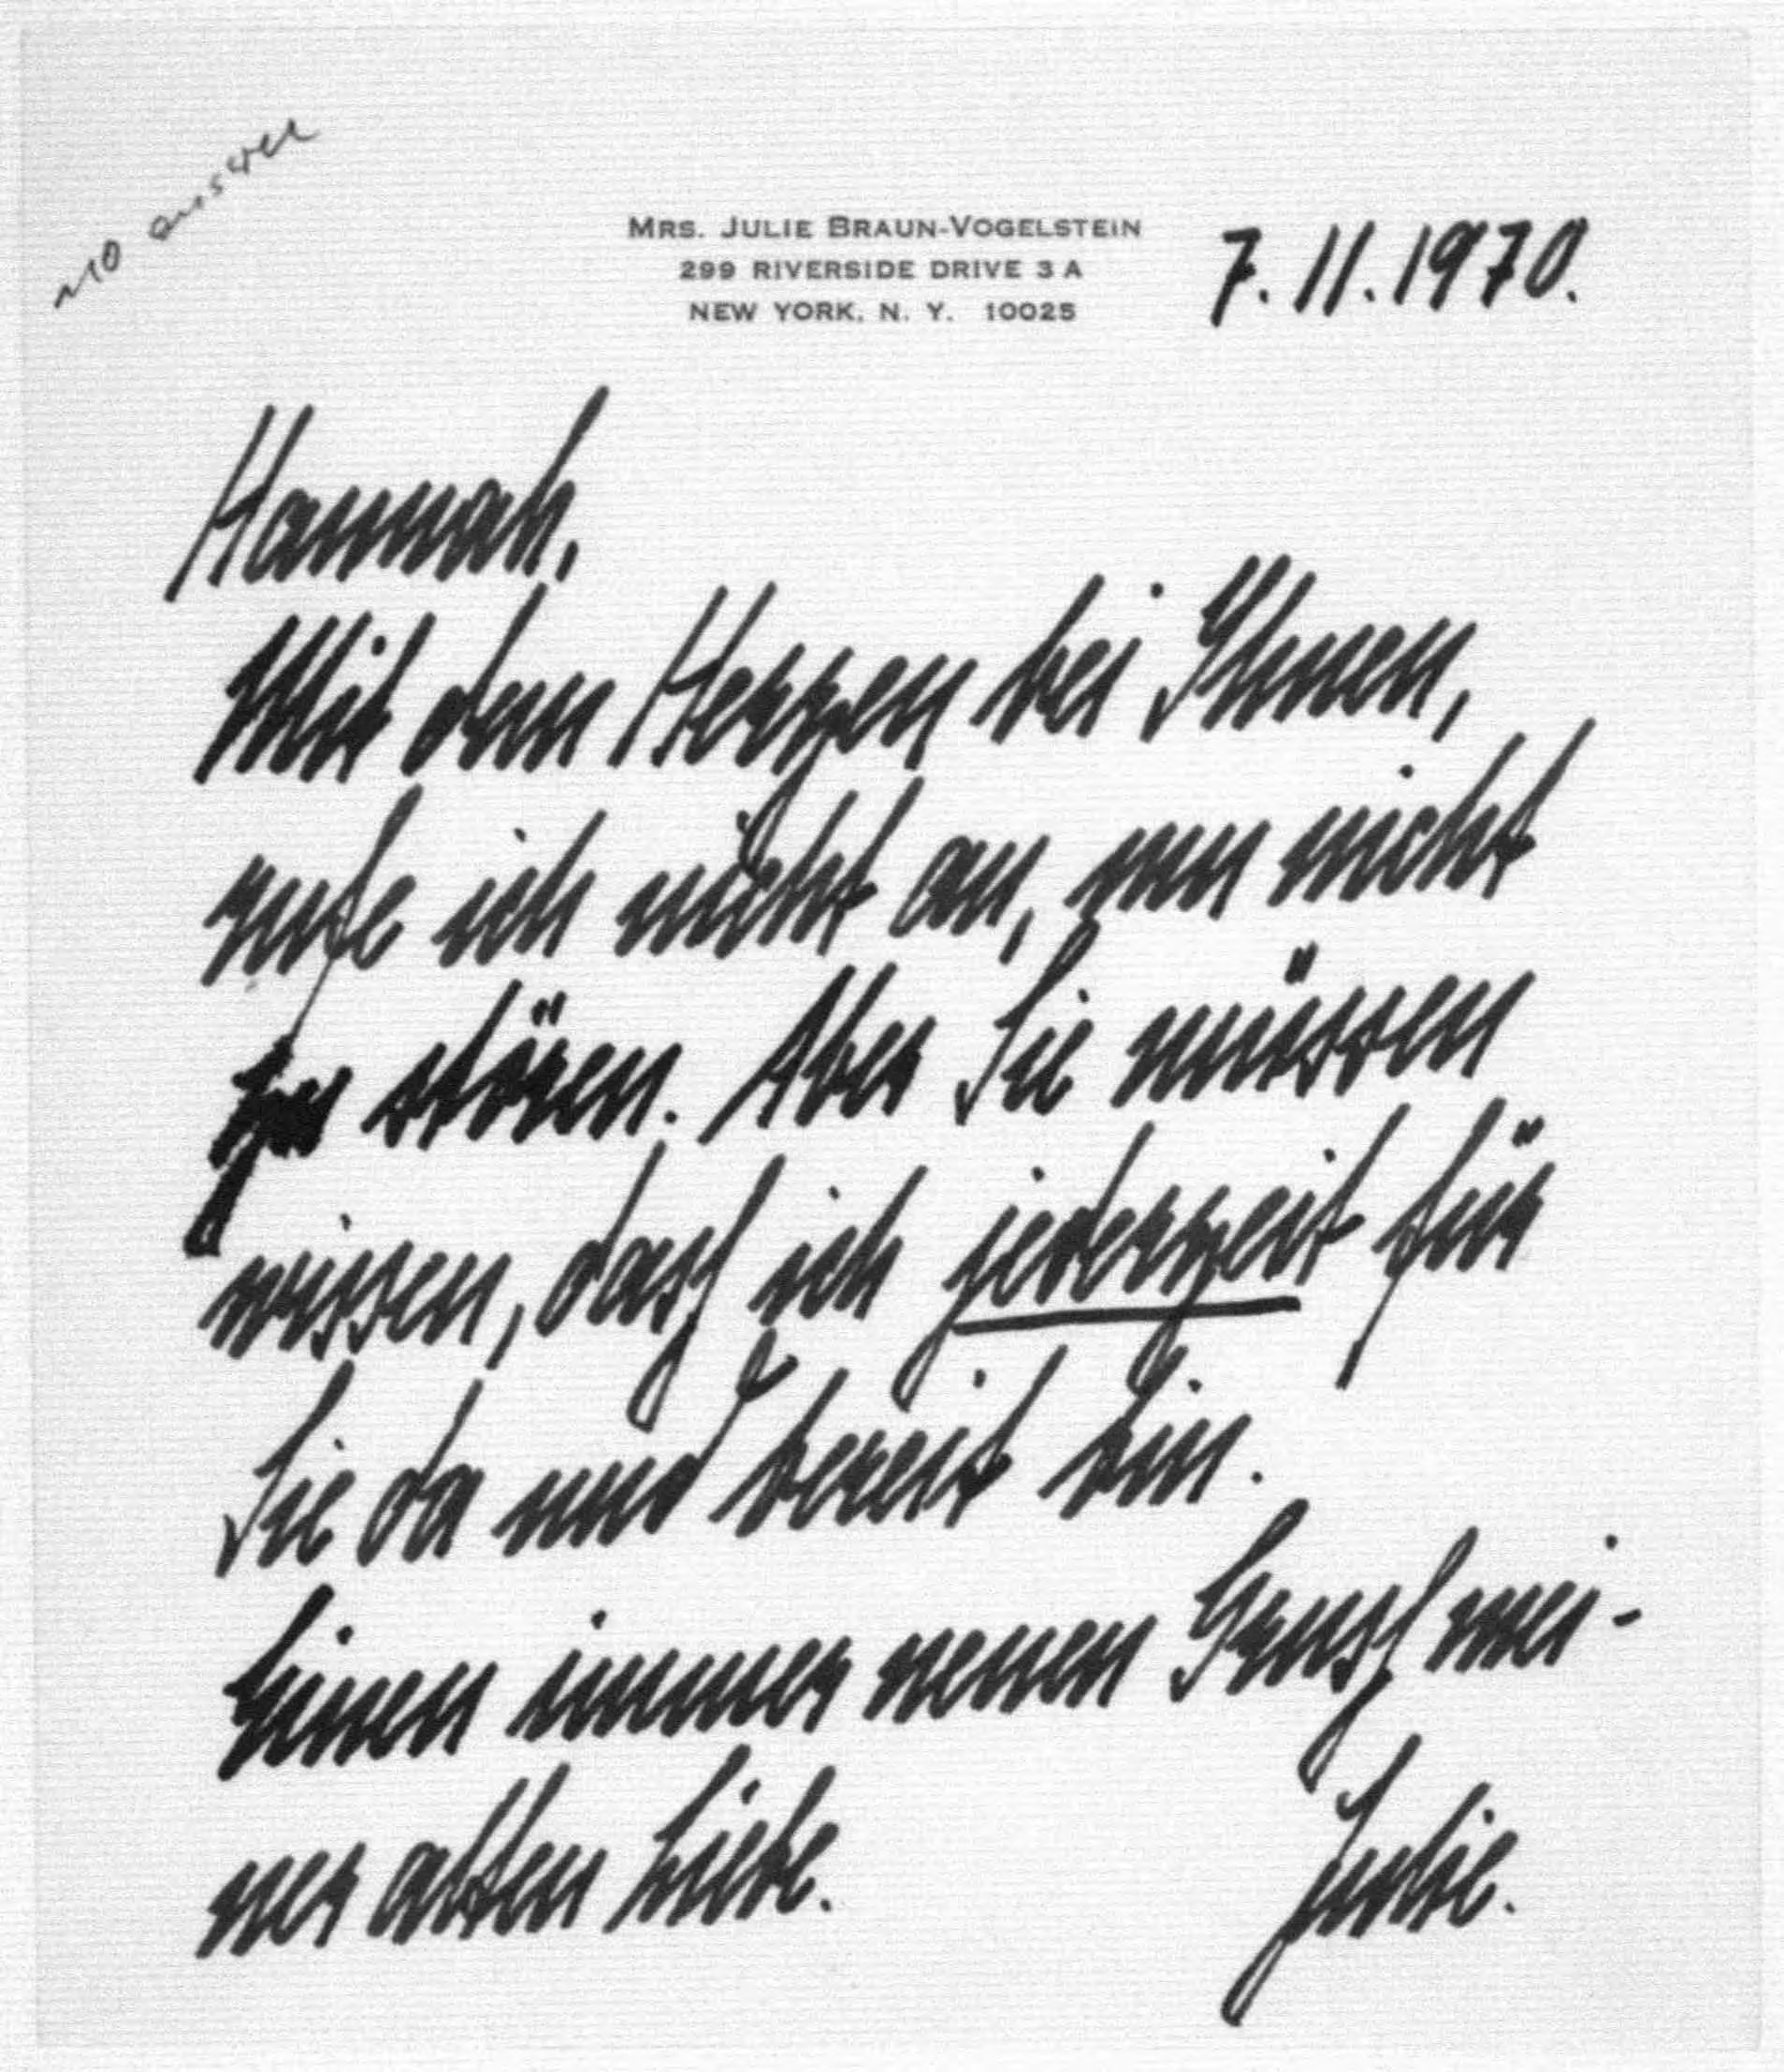 no answer
MRS. JULIE BRAUN-VOGELSTEIN
299 RIVERSIDE DRIVE 3 A
NEW YORK, N. Y. 10025
7.11.1970.
Hannah,
Mit dem Herzen bei Ihnen,
rufe ich nicht an, um nicht
zu stören. Aber Sie müssen
wissen, dass ich jederzeit für
Sie da und bereit bin.
Einen immer neuen Gruss mei-
ner alten Liebe.
Julie.